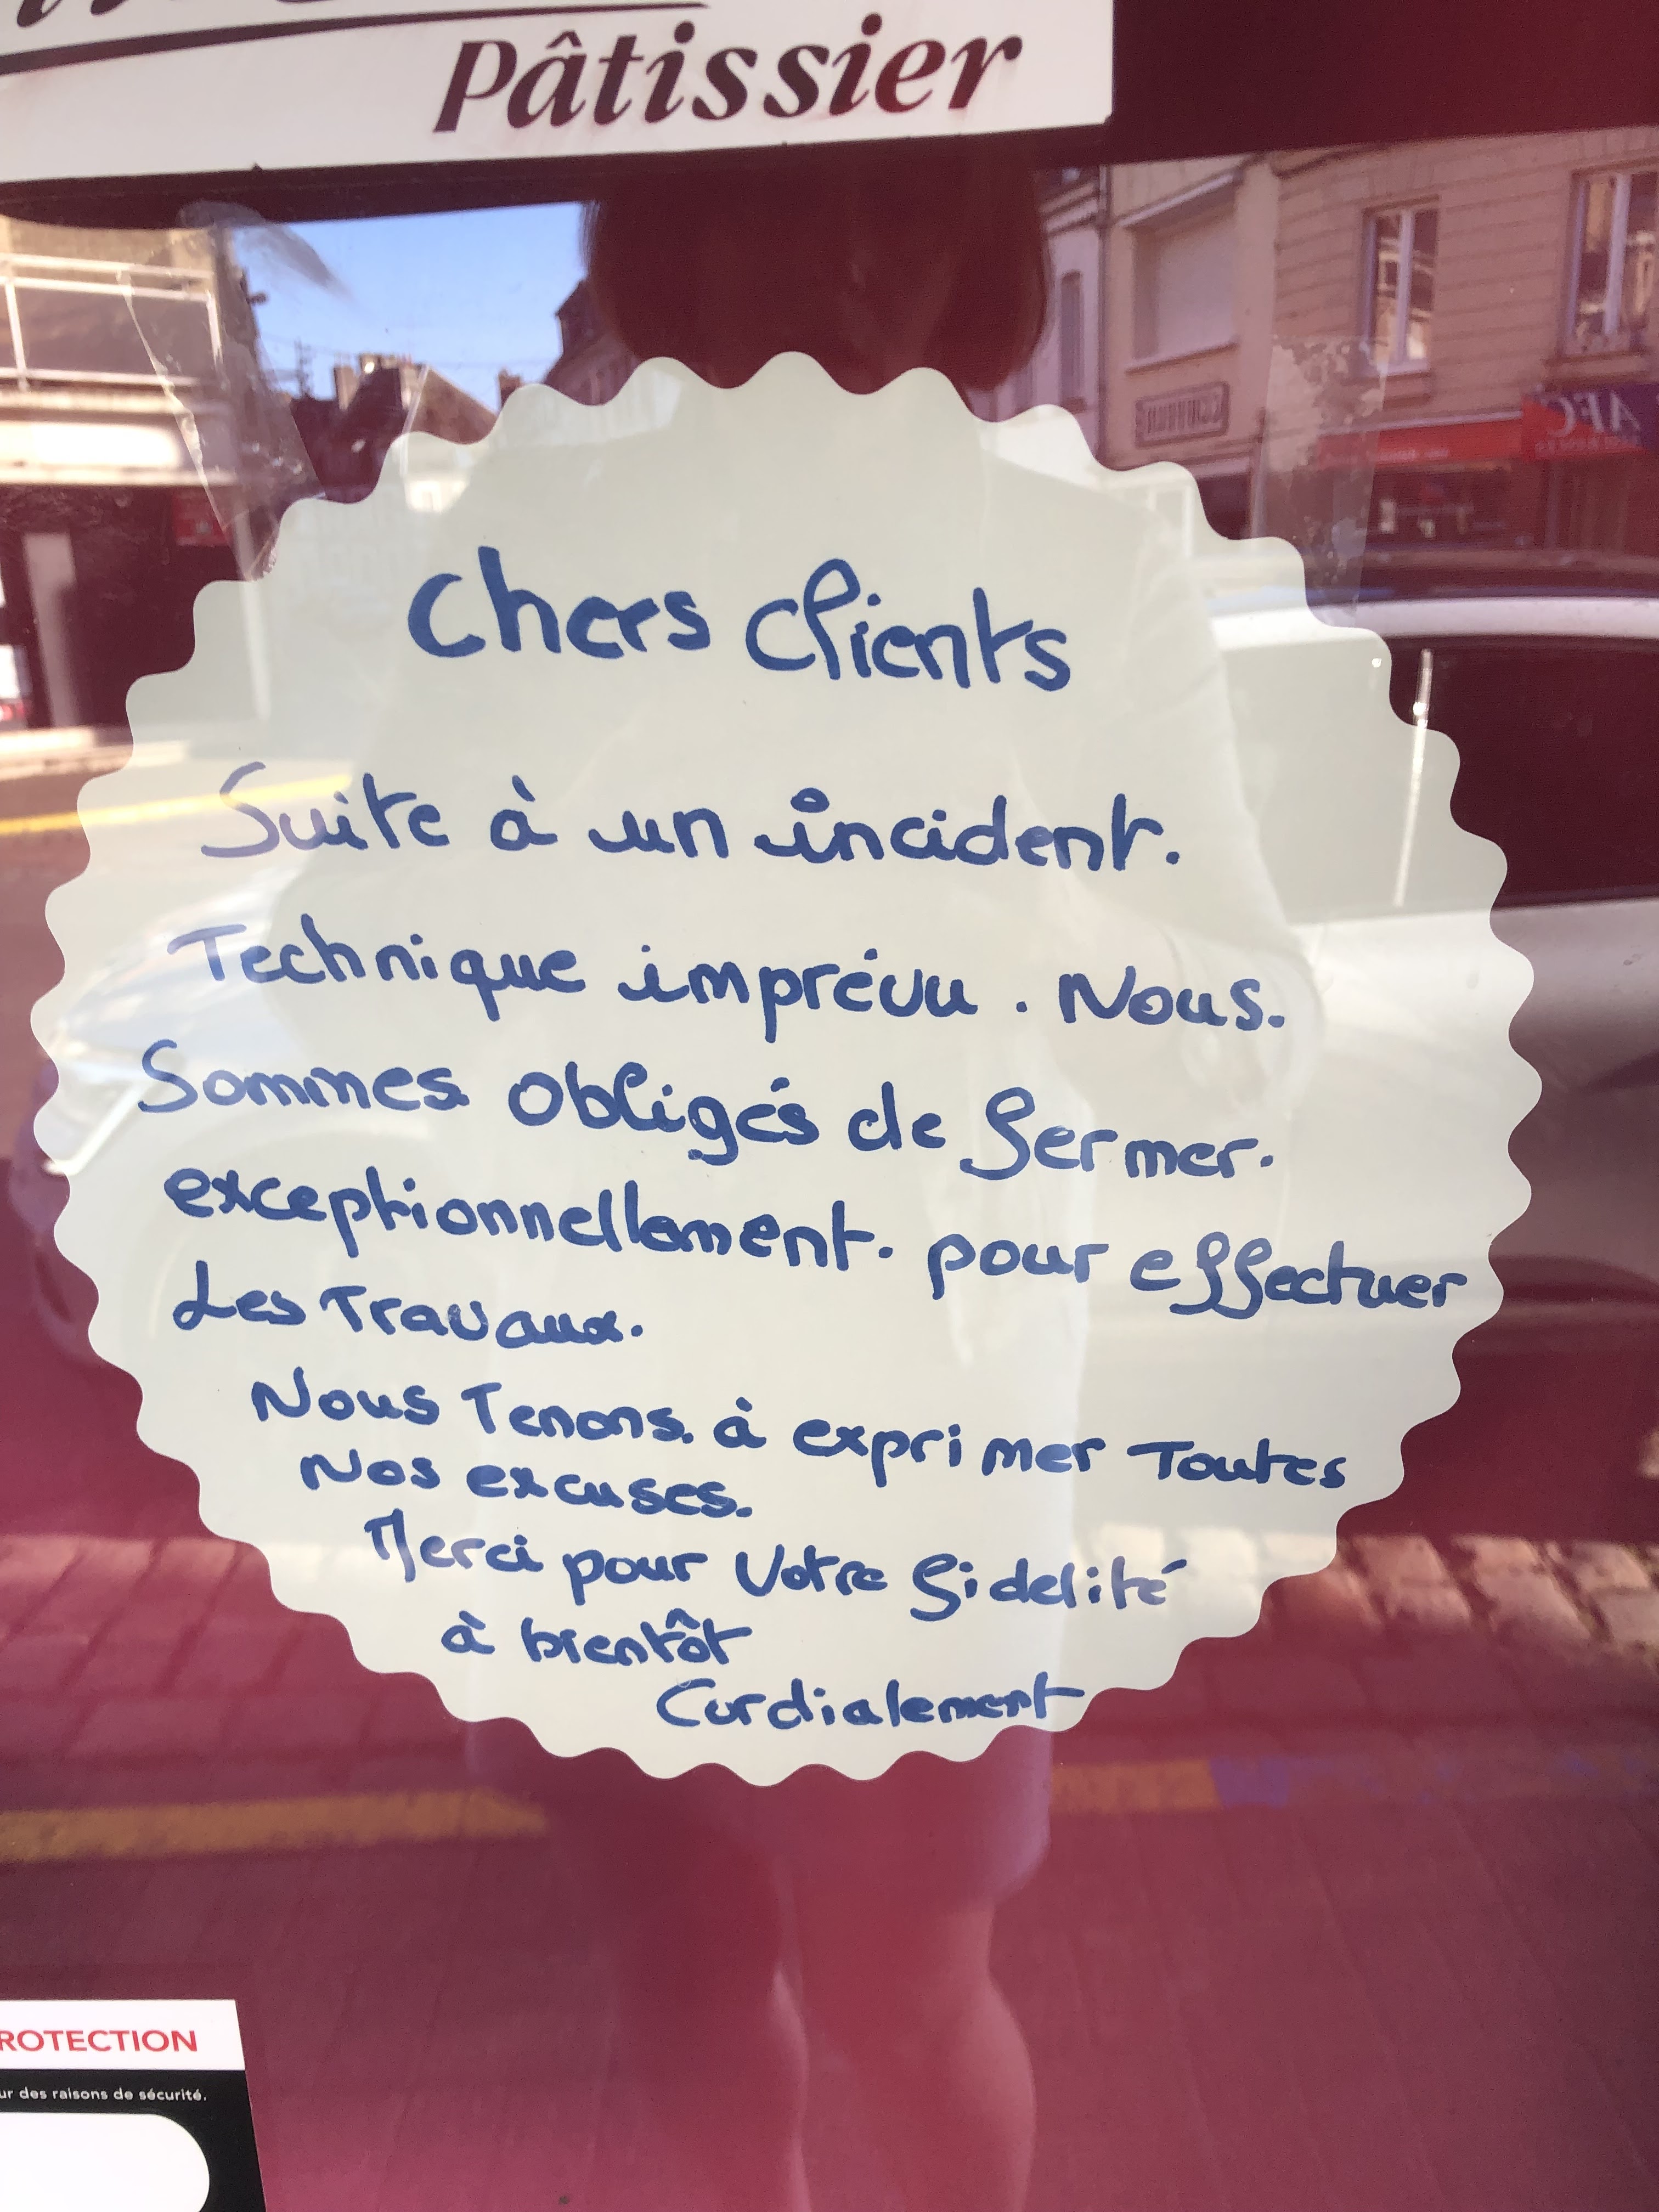 Pâtissier
Chers clients
Suite à un incident.
Technique imprévu. Nous.
Sommes obligés de fermer.
exceptionnellement. pour effectuer
Les Travaux.
Nous Tenons. à exprimer Toutes
Nos excuses.
Merci pour Votre fidelité
à bientôt
Cordialement
ROTECTION
ur des raisons de sécurité.
AFC